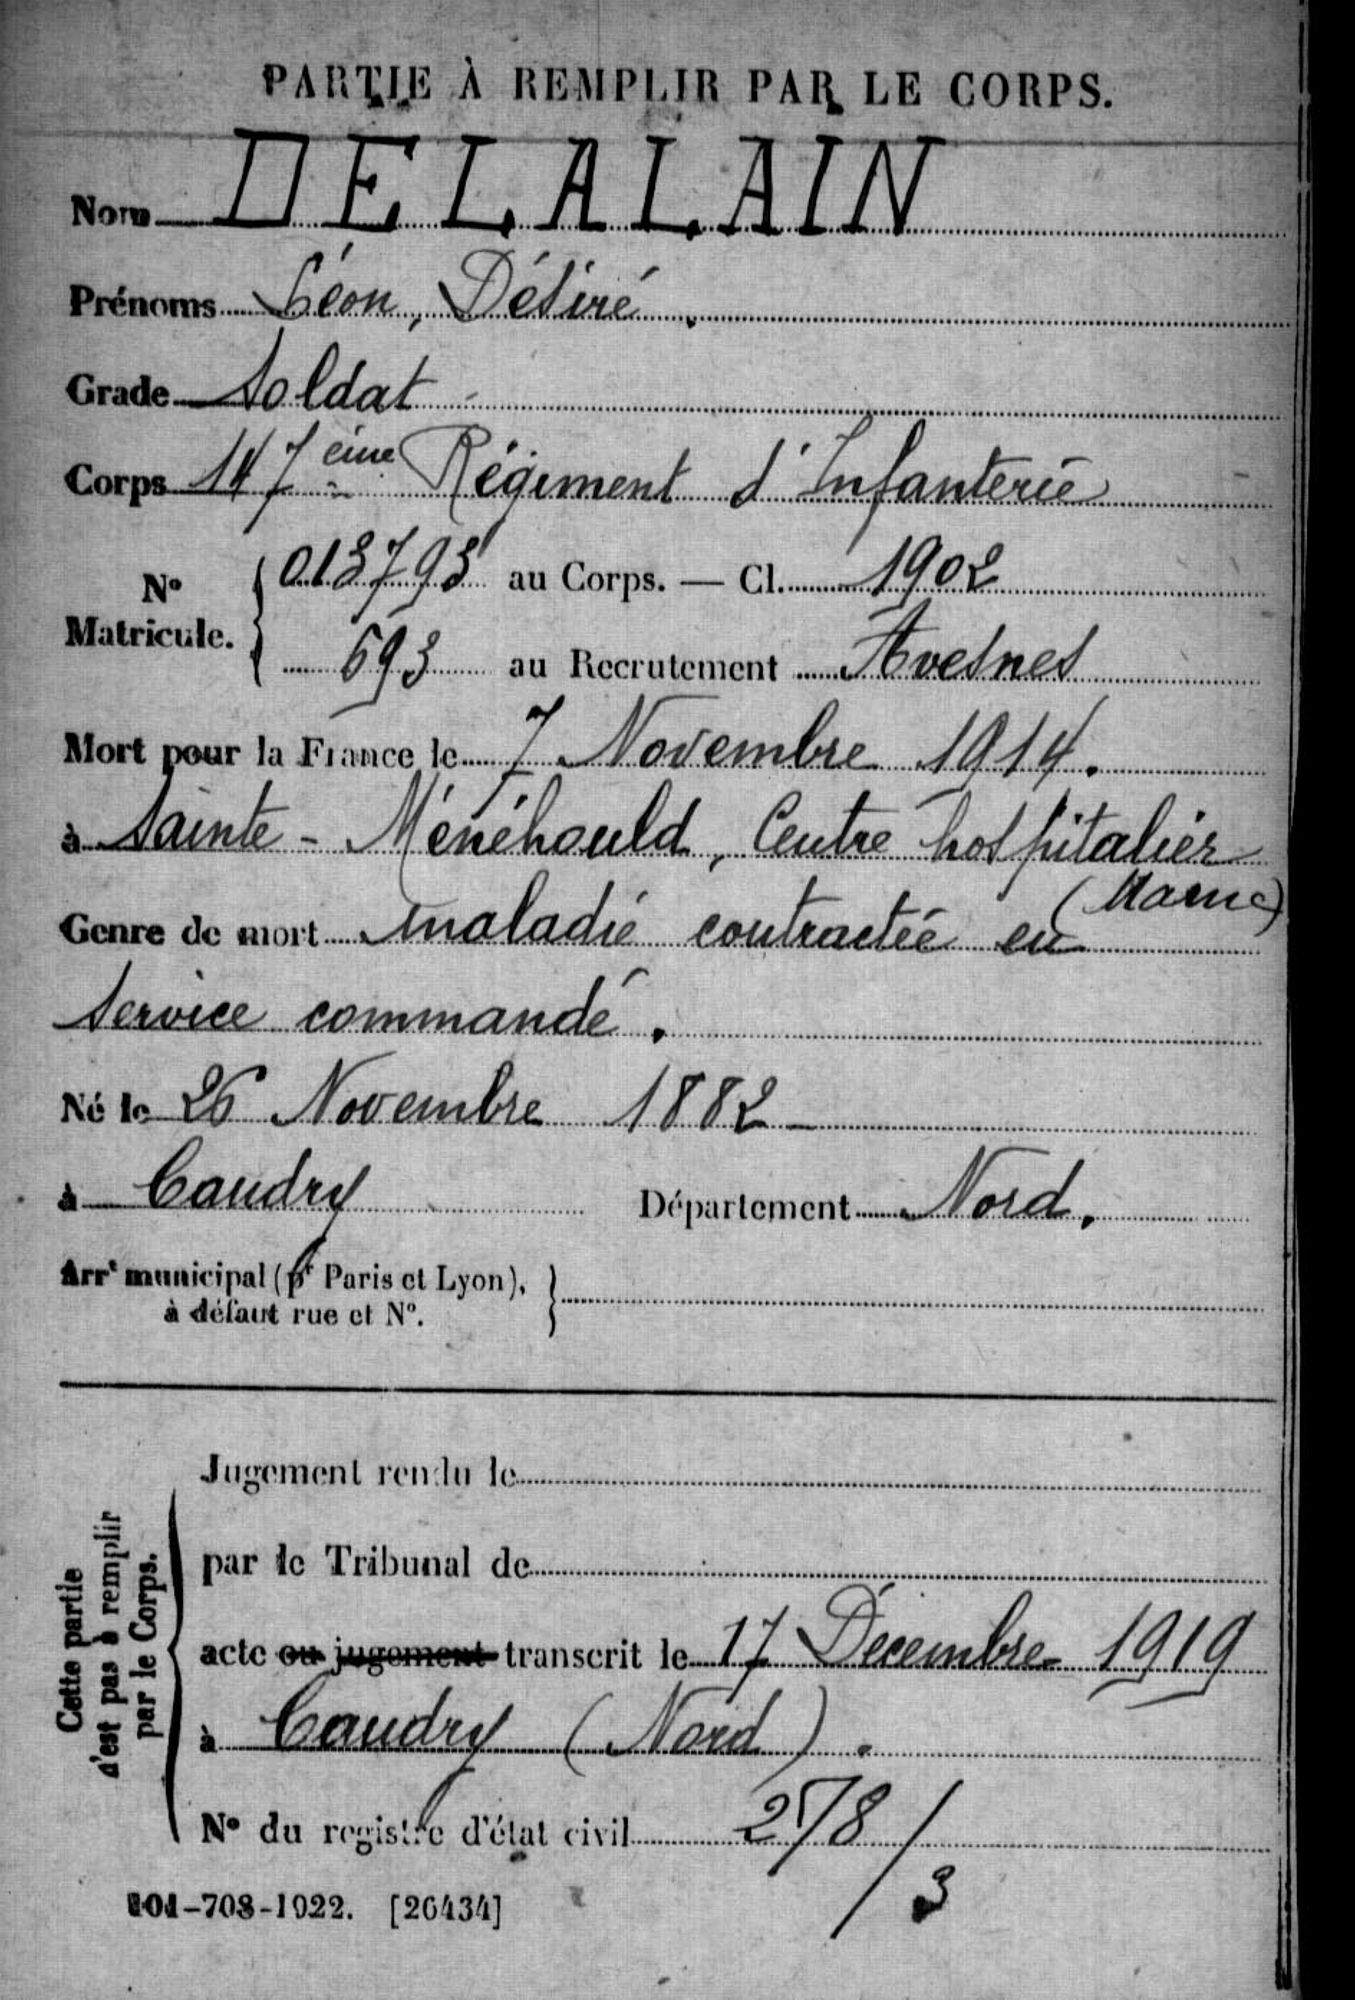 PARTIE À REMPLIR PAR LE CORPS.
Nom DELALAIN
Prénoms Léon, Désiré.
Grade Soldat
Corps 147ème Régiment d'Infanterie
N° Matricule. { 013793 au Corps. — Cl. 1902
693 au Recrutement Avesnes
Mort pour la France le 7 Novembre 1914.
à Sainte-Ménéhould, Centre hospitalier
(Marne)
Genre de mort maladie contractée en
service commandé.
Né le 26 Novembre 1882
à Caudry Département Nord.
Arrt municipal (pr Paris et Lyon), }
à défaut rue et N°.
Cette partie
n'est pas à remplir
par le Corps.
Jugement rendu le
par le Tribunal de
acte ou jugement transcrit le 17 Décembre 1919
à Caudry (Nord).
N° du registre d'état civil 278/3
101-708-1922. [26434]